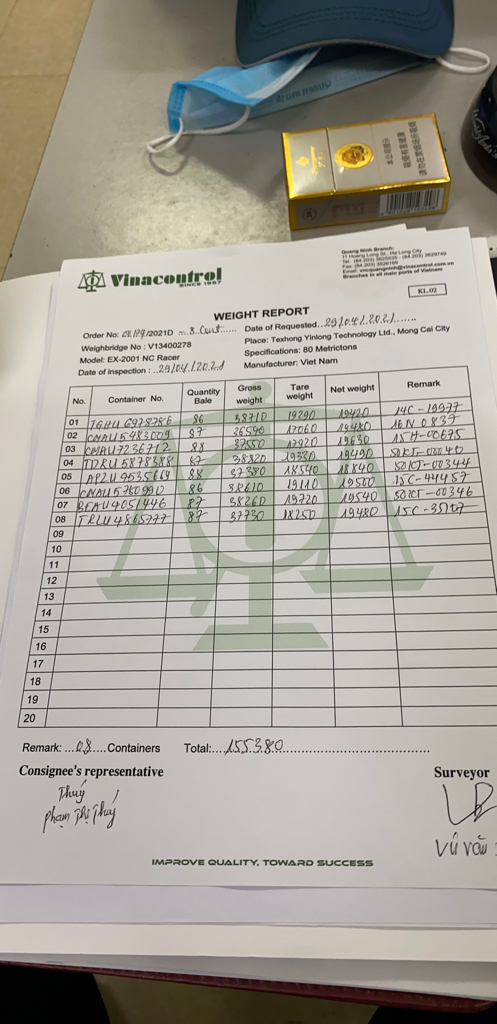 Quang Ninh Branch:
11 Hoang Long St., Ha Long City
Branches in all main ports of Vietnam
Vinacontrol
SINCE 1957
KL.02
WEIGHT REPORT
Order No: /2021D - 8 Cont Date of Requested..29/04/2021
Weighbridge No : V13400278 Place: Texhong Yinlong Technology Ltd., Mong Cai City
Model: EX-2001 NC Racer Specifications: 80 Metrictons
Date of inspection : 29/04/2021 Manufacturer: Viet Nam
No. Container No. Quantity Bale Gross weight Tare weight Net weight Remark
01 TGHU 6978786 86 38710 19290 19420 14C-19977
02 CMAU 5483009 87 36540 17060 19480 16N 0837
03 CMAU 7236712 88 37550 17920 19630 15H-00675
04 TDRU 5878388 87 38820 19330 19490
05 APZU 9535669 88 37380 18540 18840 50KT-00344
06 CMAU 5760990 86 38610 19110 19500 15C-44457
07 BEAU 4051446 87 38260 19720 19540 50KT-00346
08 TRLU 4865777 87 37730 18250 19480 15C-35107
09
10
11
12
13
14
15
16
17
18
19
20
Remark: ...08.... Containers Total:....155380
Consignee's representative Surveyor
Thuý
Phạm Thị Thuý Vũ Văn
IMPROVE QUALITY, TOWARD SUCCESS